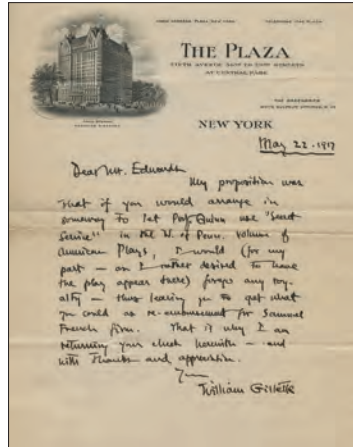 THE PLAZA
FIFTH AVENUE 58TH TO 59TH STREETS
AT CENTRAL PARK
NEW YORK
May 22 - 1917
Dear Mr. Edwards
My proposition was
that if you would arrange in
someway to let Prof Quinn use "Secret
Service" in the U. of Penn. volume of
American Plays, I would (for my
part — as I rather desired to have
the play appear there) forego any roy-
alty — thus leaving you to get what
you could as re-imbursement for Samuel
French firm. That is why I am
returning your check herewith — and
with thanks and appreciation.
Yours
William Gillette